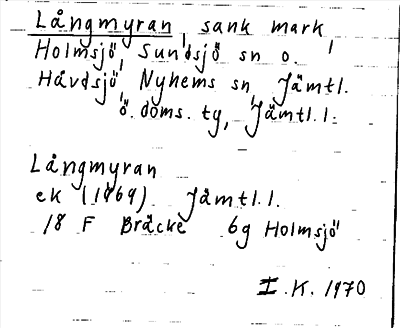 Långmyran, sank mark,
Holmsjö, Sundsjö sn o.
Håvdsjö, Nyhems sn Jämtl.
ö. doms. tg, Jämtl. l.
Långmyran
ek (1969) Jämtl. l.
18 F Bräcke 6g Holmsjö
I. K. 1970